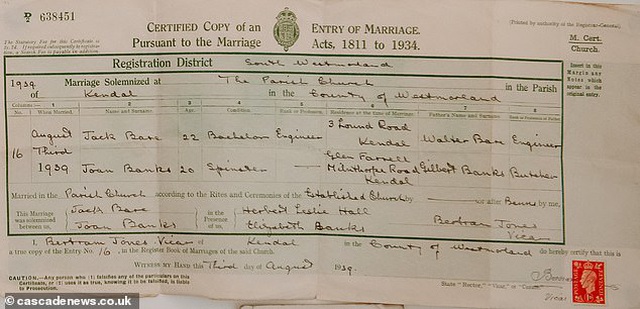 638451
CERTIFIED COPY of an ENTRY OF MARRIAGE.
Pursuant to the Marriage Acts, 1811 to 1934.
[Printed by authority of the Registrar-General.]
M. Cert.
Church.
Registration District South Westmorland
Insert in this Margin any Notes which appear in the original entry.
1939 Marriage Solemnized at The Parish Church in the Parish
of Kendal in the County of Westmorland
Columns 1 2 3 4 5 6 7 8
No. When Married. Name and Surname. Age. Condition. Rank or Profession. Residence at the time of Marriage. Father's Name and Surname. Rank or Profession of Father.
16 August Third 1939
Jack Bare 22 Bachelor Engineer 3 Round Road Kendal Walter Bare Engineer
Joan Banks 20 Spinster — Milnthorpe Road Kendal Gilbert Banks Butcher
Married in the Parish Church according to the Rites and Ceremonies of the Established Church by after Banns by me,
This Marriage was solemnized between us, Jack Bare Joan Banks in the Presence of us, Herbert Leslie Hall Elizabeth Banks Bertram Jones Vicar
I, Bertram Jones Vicar of Kendal in the County of Westmorland do hereby certify that this is
a true copy of the Entry No. 16, in the Register Book of Marriages of the said Church.
WITNESS MY HAND this Third day of August 1939.
CAUTION.—Any person who (1) falsifies any of the particulars on this Certificate, or (2) uses it as true, knowing it to be falsified, is liable to Prosecution.
© cascadenews.co.uk